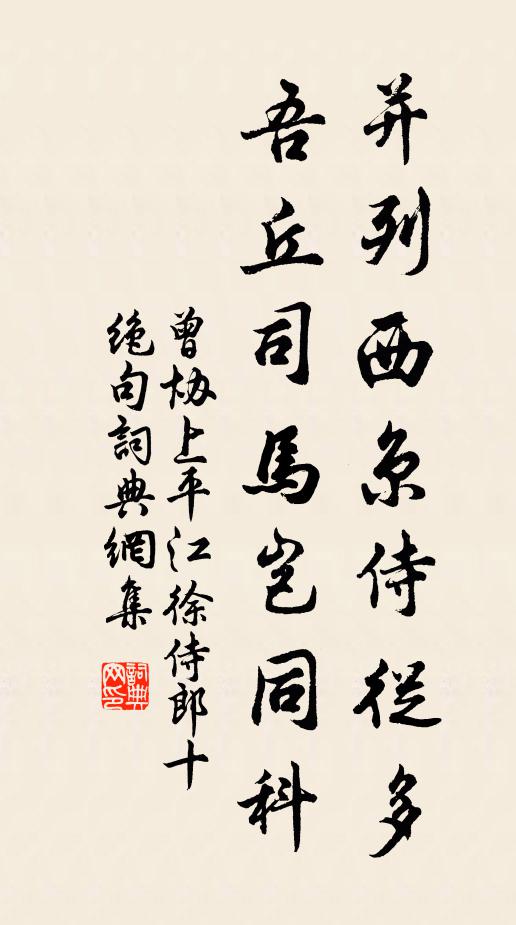 并列西京侍從多
吾丘司馬豈同科
曾協上平江徐侍郎十
絕句詞典網集
詞典网印